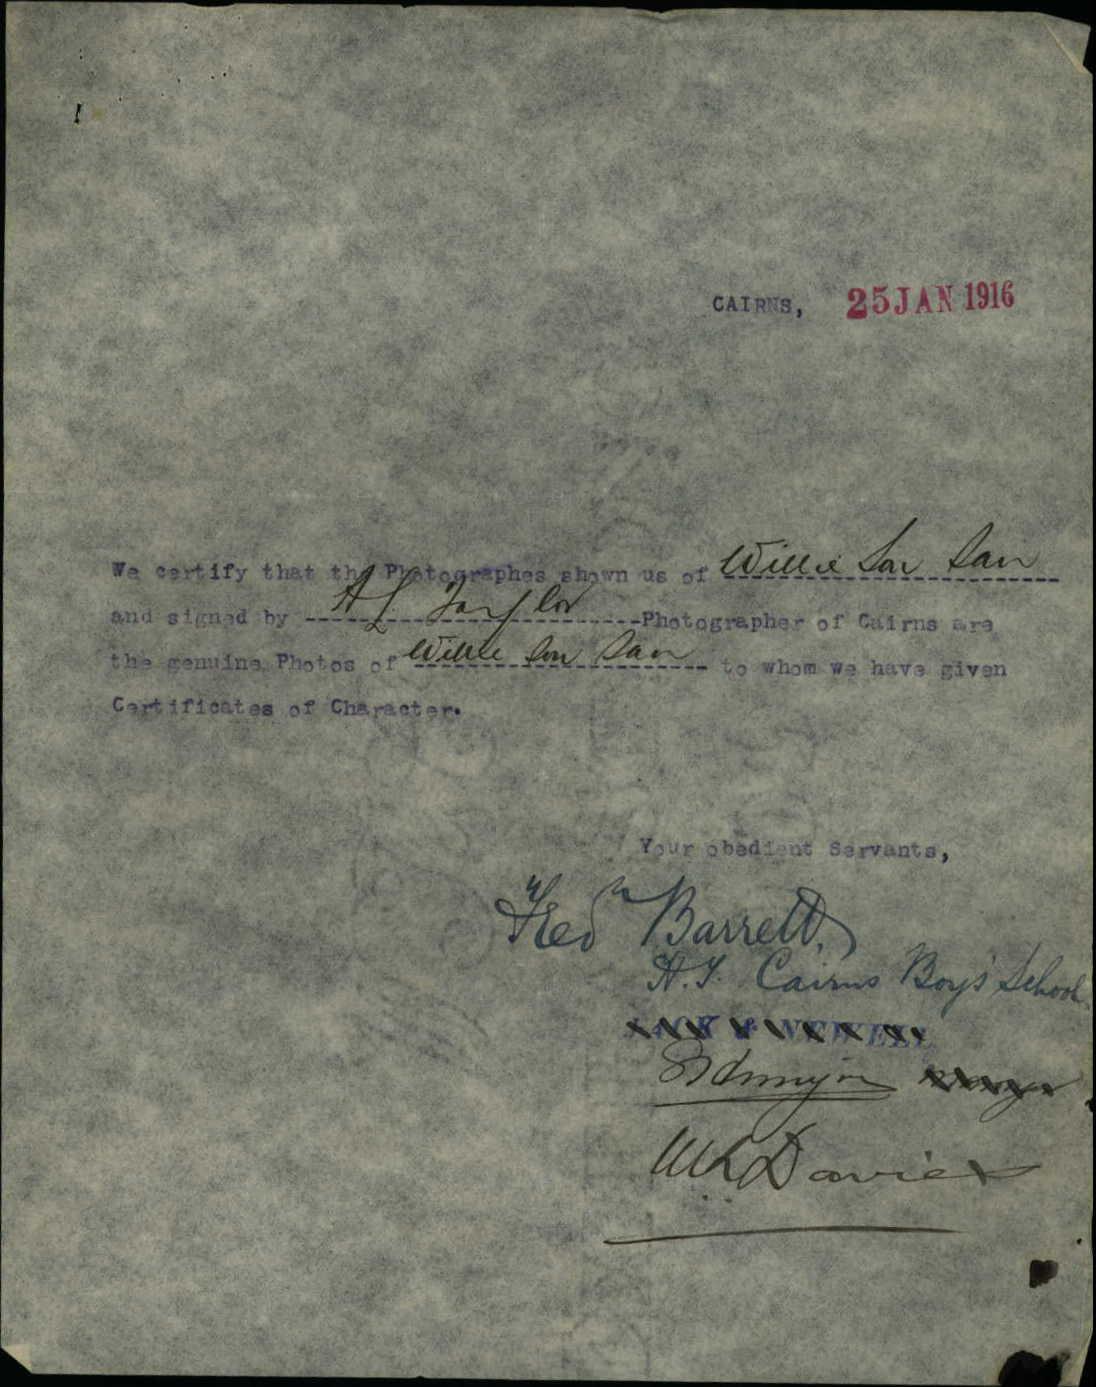 CAIRNS, 25 JAN 1916
We certify that the Photographes shown us of Willie Son San
and signed by A L Taylor Photographer of Cairns are
the genuine Photos of Willie Son San to whom we have given
Certificates of Character.
Your obedient Servants,
Fred Barrett,
H.T. Cairns Boys' School
JACK & NEWELL
Davies